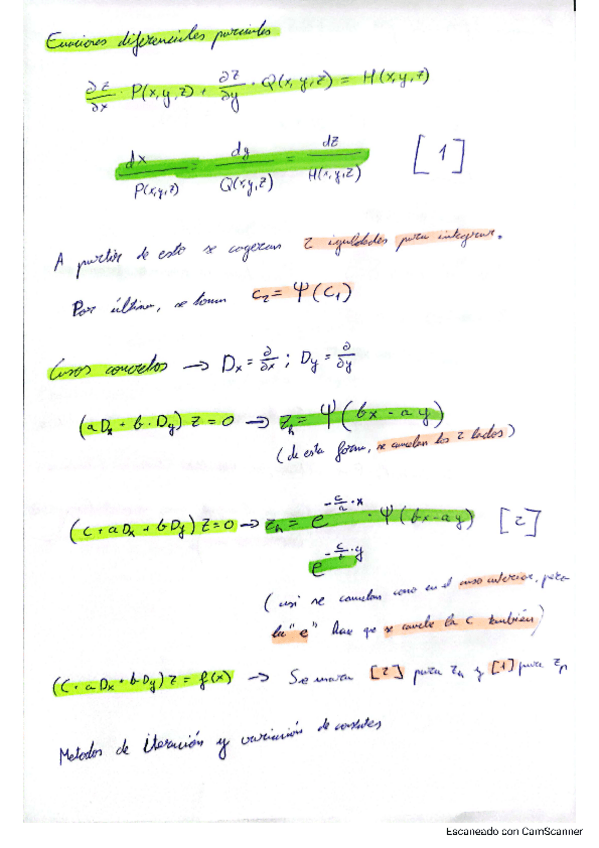 Ecuaciones diferenciales parciales
∂z/∂x · P(x,y,z) + ∂z/∂y · Q(x,y,z) = H(x,y,z)
dx/P(x,y,z) = dy/Q(x,y,z) = dz/H(x,y,z) [1]
A partir de esto se cogeran 2 igualdades para integrar.
Por último, se toma C₂ = Ψ(C₁)
Casos concretos → Dx = ∂/∂x ; Dy = ∂/∂y
(aDx + b·Dy) z = 0 → zh = Ψ(bx - ay)
(de esta forma, se cancelan los 2 lados)
(C + aDx + bDy) z = 0 → zh = e^(-c/a·x) · Ψ(bx-ay) [2]
e^(-c/b·y)
(así se cancelan como en el caso anterior, pero
la "e" hace que se cancele la C también)
(C + aDx + bDy) z = f(x) → Se usara [2] para zh y [1] para zp
Metodos de iteración y variación de constantes
Escaneado con CamScanner